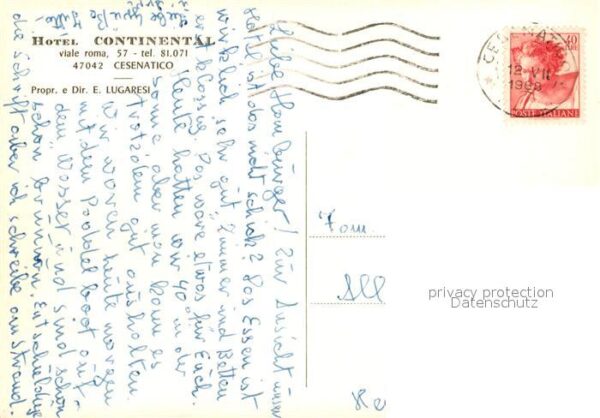 HOTEL CONTINENTAL
viale roma, 57 - tel. 81.071
47042 CESENATICO
Propr. e Dir. E. LUGARESI
CESENATICO
12 VII
POSTE ITALIANE
40
Liebe Hamburger! Zur Ansicht unser
Hotel, ist das nicht schick? Das Essen ist
wirklich sehr gut, Zimmer und Betten
erstklassig. Das wäre etwas für Euch.
Heute hatten wir 40° in der
Sonne aber man kann es
trotzdem gut aushalten.
Wir waren heute morgen
mit dem Paddelboot auf
dem Wasser und sind schön
braun. Entschuldige
die Schrift aber ich schreibe am Strand.
Fam.
All
privacy protection
Datenschutz